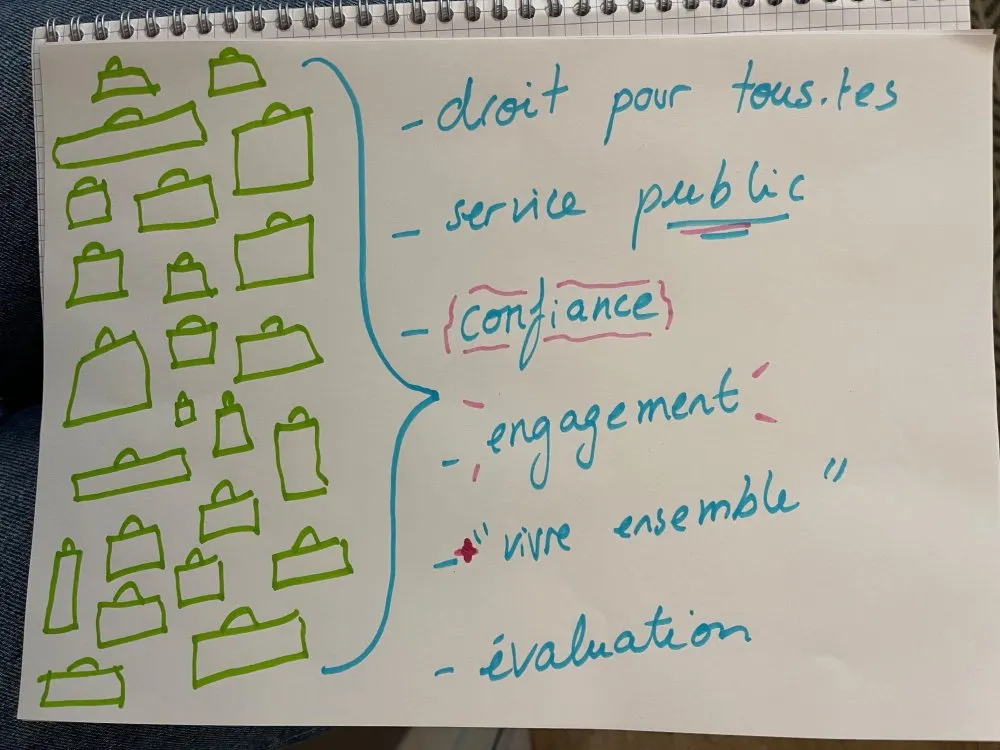 - droit pour tous.tes
- service public
- {confiance}
- engagement
- "vivre ensemble"
- évaluation